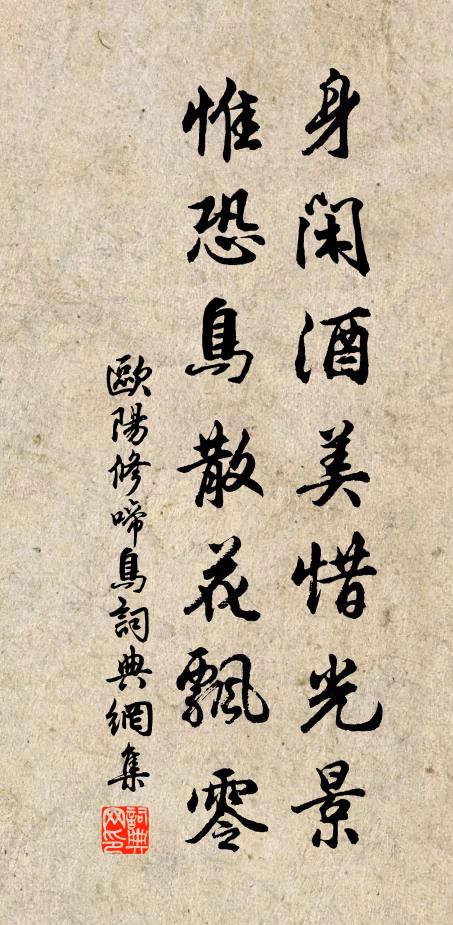 身閑酒美惜光景
惟恐鳥散花飄零
歐陽修啼鳥詞典網集
詞典網印